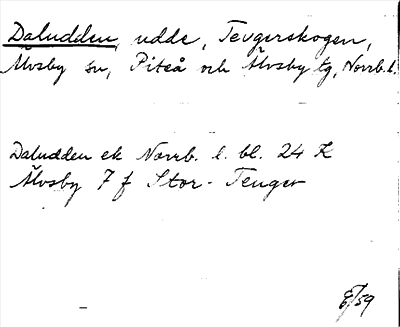 Daludden, udde, Teugerskogen,
Älvsby sn, Piteå och Älvsby tg, Norrb. l.
Daludden ek Norrb. l. bl. 24 K
Älvsby 7 f Stor-Teuger
E/59